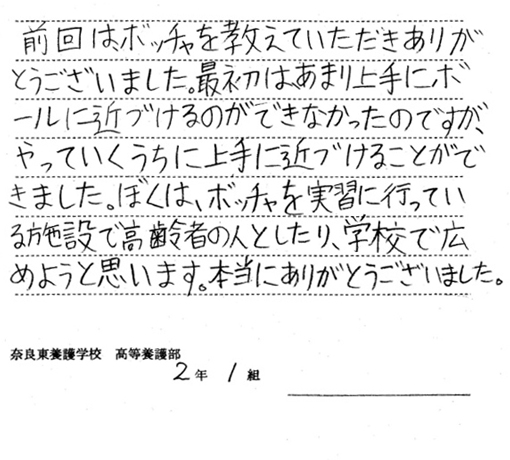 前回は、ボッチャを教えていただきありが
とうございました。最初は、あまり上手に、ボ
ールに近づけるのができなかったのですが、
やっていくうちに上手に近づけることがで
きました。ぼくは、ボッチャを実習に行ってい
る施設で高齢者の人としたり、学校で広
めようと思います。本当にありがとうございました。
奈良東養護学校 高等養護部
2年 1組